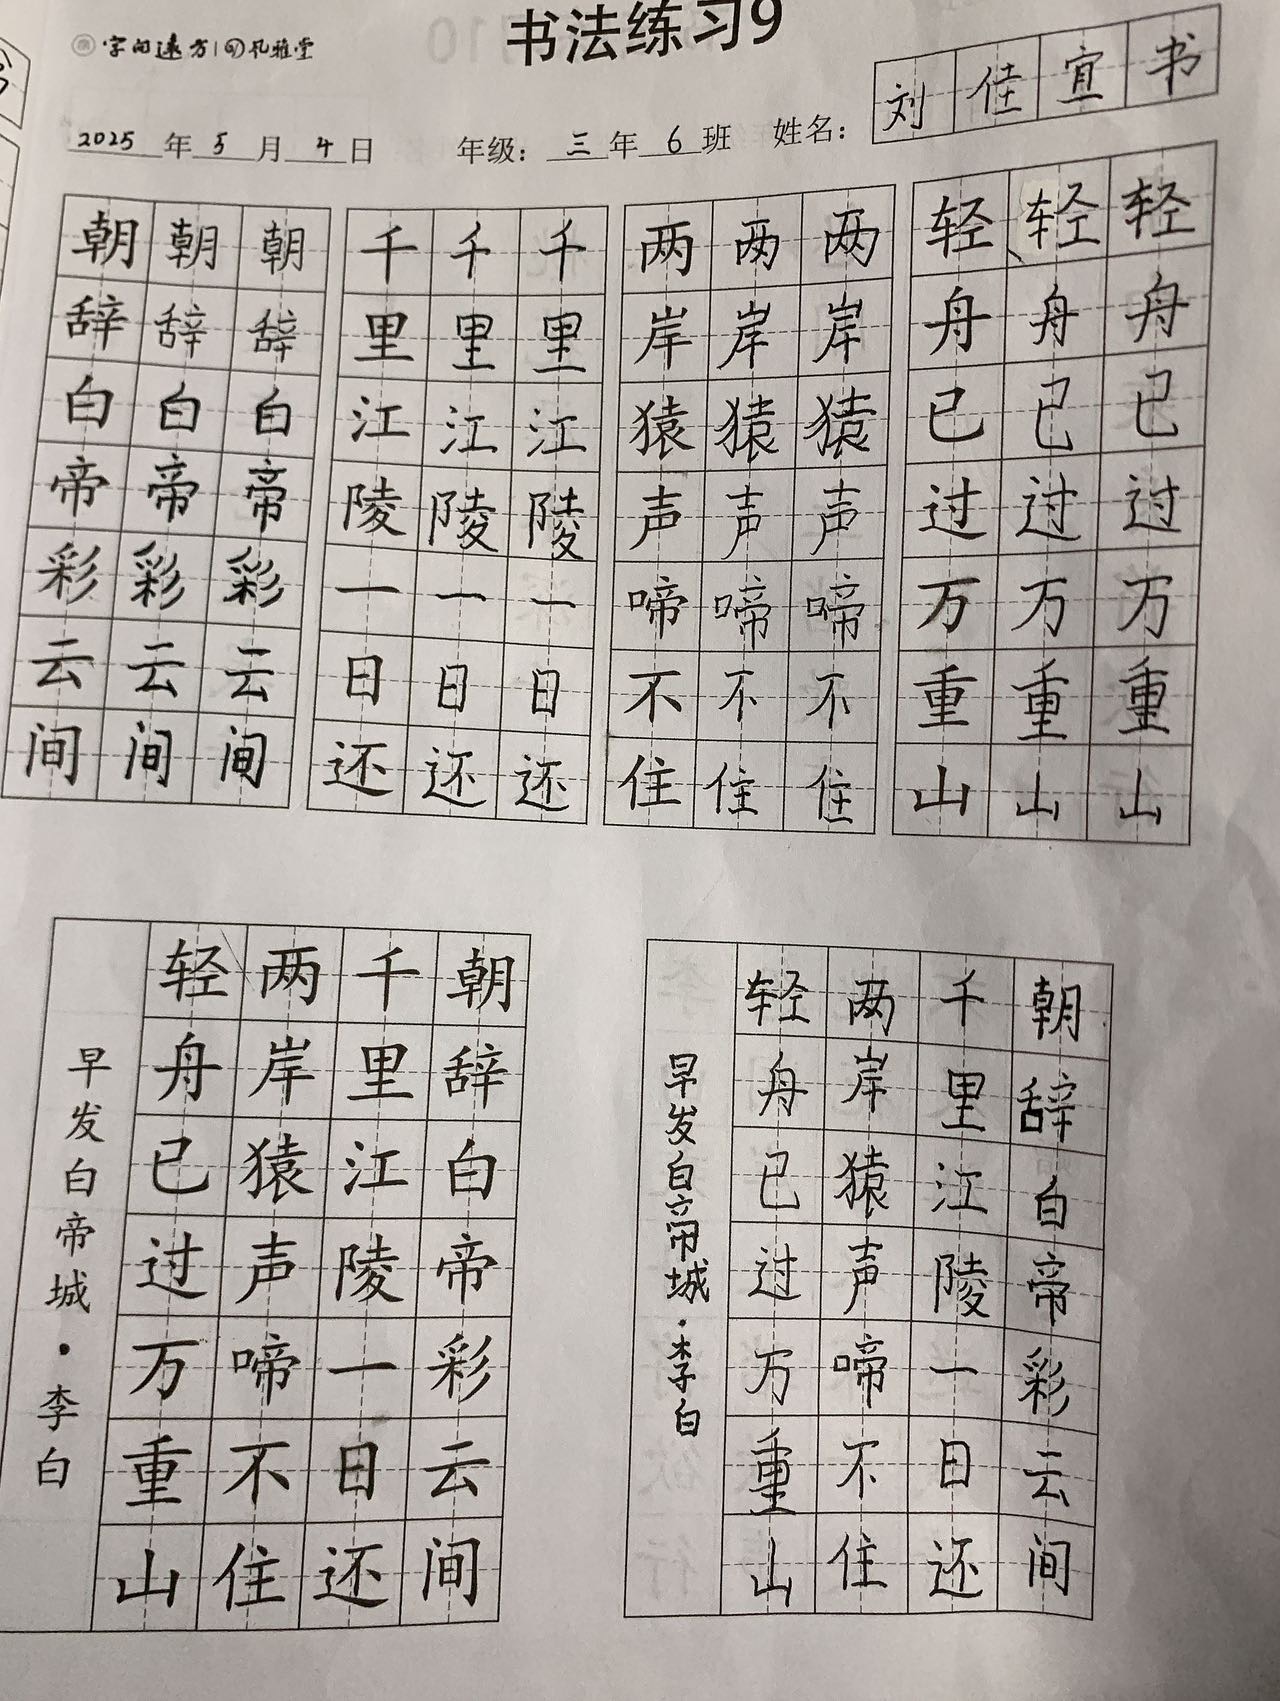 字向远方 | 孔雅堂
书法练习9
2025年5月4日 年级：三年6班 姓名：刘佳宜书
朝朝朝 千千千 两两两 轻轻轻
辞辞辞 里里里 岸岸岸 舟舟舟
白白白 江江江 猿猿猿 已已已
帝帝帝 陵陵陵 声声声 过过过
彩彩彩 一一一 啼啼啼 万万万
云云云 日日日 不不不 重重重
间间间 还还还 住住住 山山山
朝辞白帝彩云间
千里江陵一日还
两岸猿声啼不住
轻舟已过万重山
早发白帝城·李白
朝辞白帝彩云间
千里江陵一日还
两岸猿声啼不住
轻舟已过万重山
早发白帝城·李白